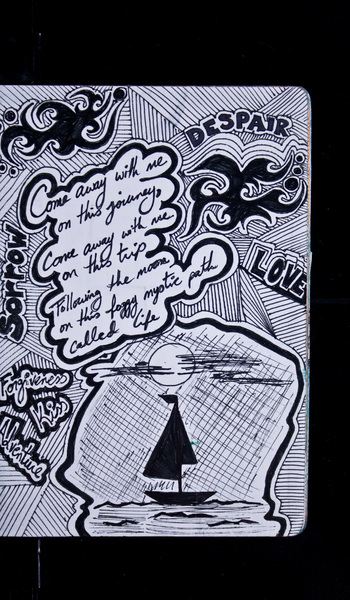 DESPAIR
Come away with me
on this journey,
Come away with me
on this trip
Following the moon
on this foggy mystic path
called life
Sorrow
LOVE
Forgiveness
Kiss